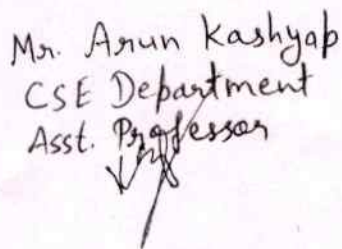 Mr. Arun Kashyap
CSE Department
Asst. Professor